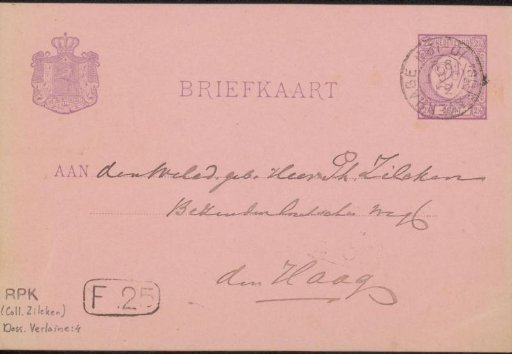 BRIEFKAART
AAN den Weled. geb. Heer Ph. Zilcken
Bezuidenhoutsche weg
den Haag
RPK
(Coll. Zilcken)
Doss. Verlaine:4
F 25